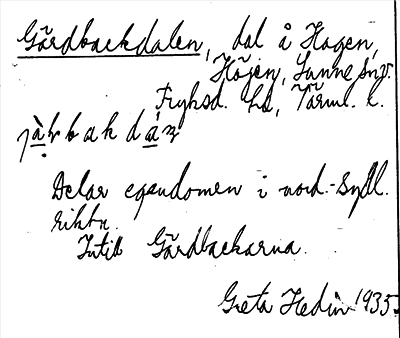 Gårdbackdalen, dal å Hagen,
Höjen, Sunne sn.
Fryksd. hd, Värml. l.
Delar egendomen i nord.-sydl.
riktn.
Intill Gårdbackarna.
Greta Hedin 1935.